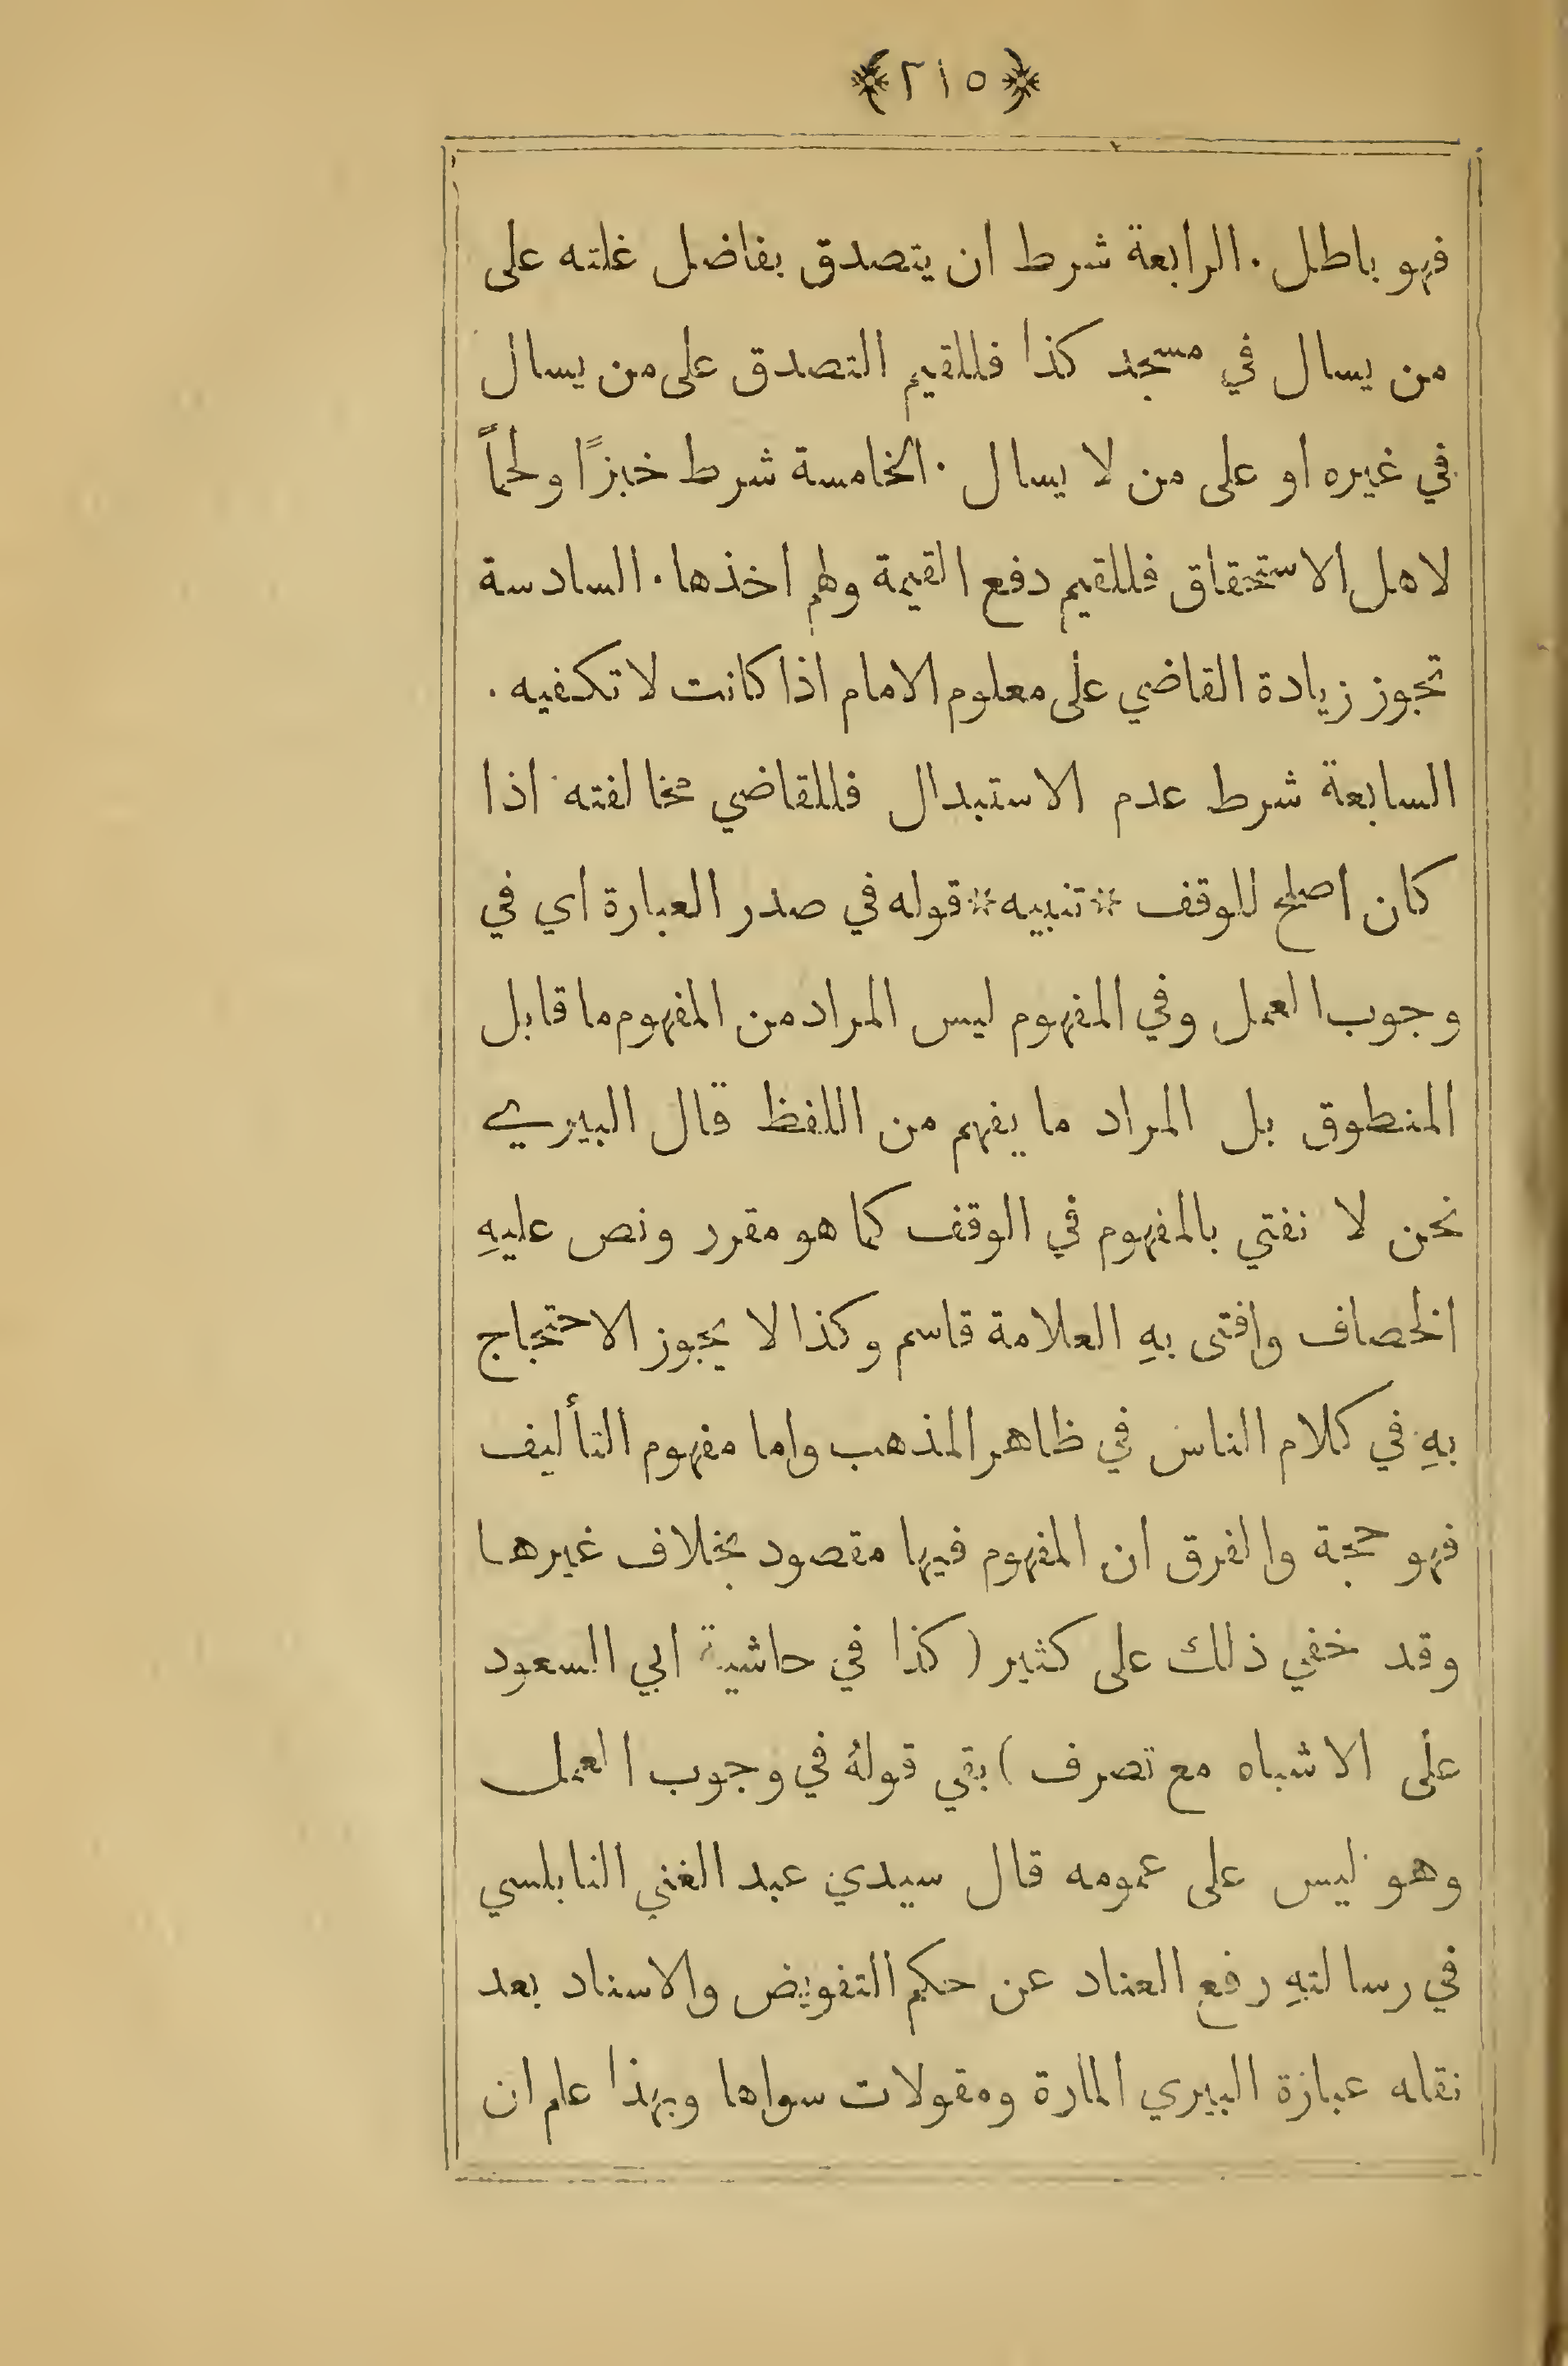 ﴿٢١٥﴾
فهو باطل . الرابعة شرط ان يتصدق بفاضل غلته على
من يسال في مسجد كذا فللقيم التصدق على من يسال
في غيره او على من لا يسال . الخامسة شرط خبزًا ولحماً
لاهل الاستحقاق فللقيم دفع القيمة ولهم اخذها . السادسة
تجوز زيادة القاضي على معلوم الامام اذا كانت لا تكفيه .
السابعة شرط عدم الاستبدال فللقاضي مخالفته اذا
كان اصلح للوقف * تنبيه * قوله في صدر العبارة اي في
وجوب العمل وفي المفهوم ليس المراد من المفهوم ما قابل
المنطوق بل المراد ما يفهم من اللفظ قال البيري
نحن لا نفتي بالمفهوم في الوقف كما هو مقرر ونص عليهِ
الخصاف وافتى بهِ العلامة قاسم وكذا لا يجوز الاحتجاج
بهِ في كلام الناس في ظاهر المذهب واما مفهوم التأليف
فهو حجة والفرق ان المفهوم فيها مقصود بخلاف غيرها
وقد خفي ذلك على كثير ( كذا في حاشية ابي السعود
على الاشباه مع تصرف ) بقي قولهُ في وجوب العمل
وهو ليس على عمومه قال سيدي عبد الغني النابلسي
في رسالتهِ رفع العناد عن حكم التفويض والاسناد بعد
نقله عبارة البيري المارة ومقولات سواها وبهذا علم ان